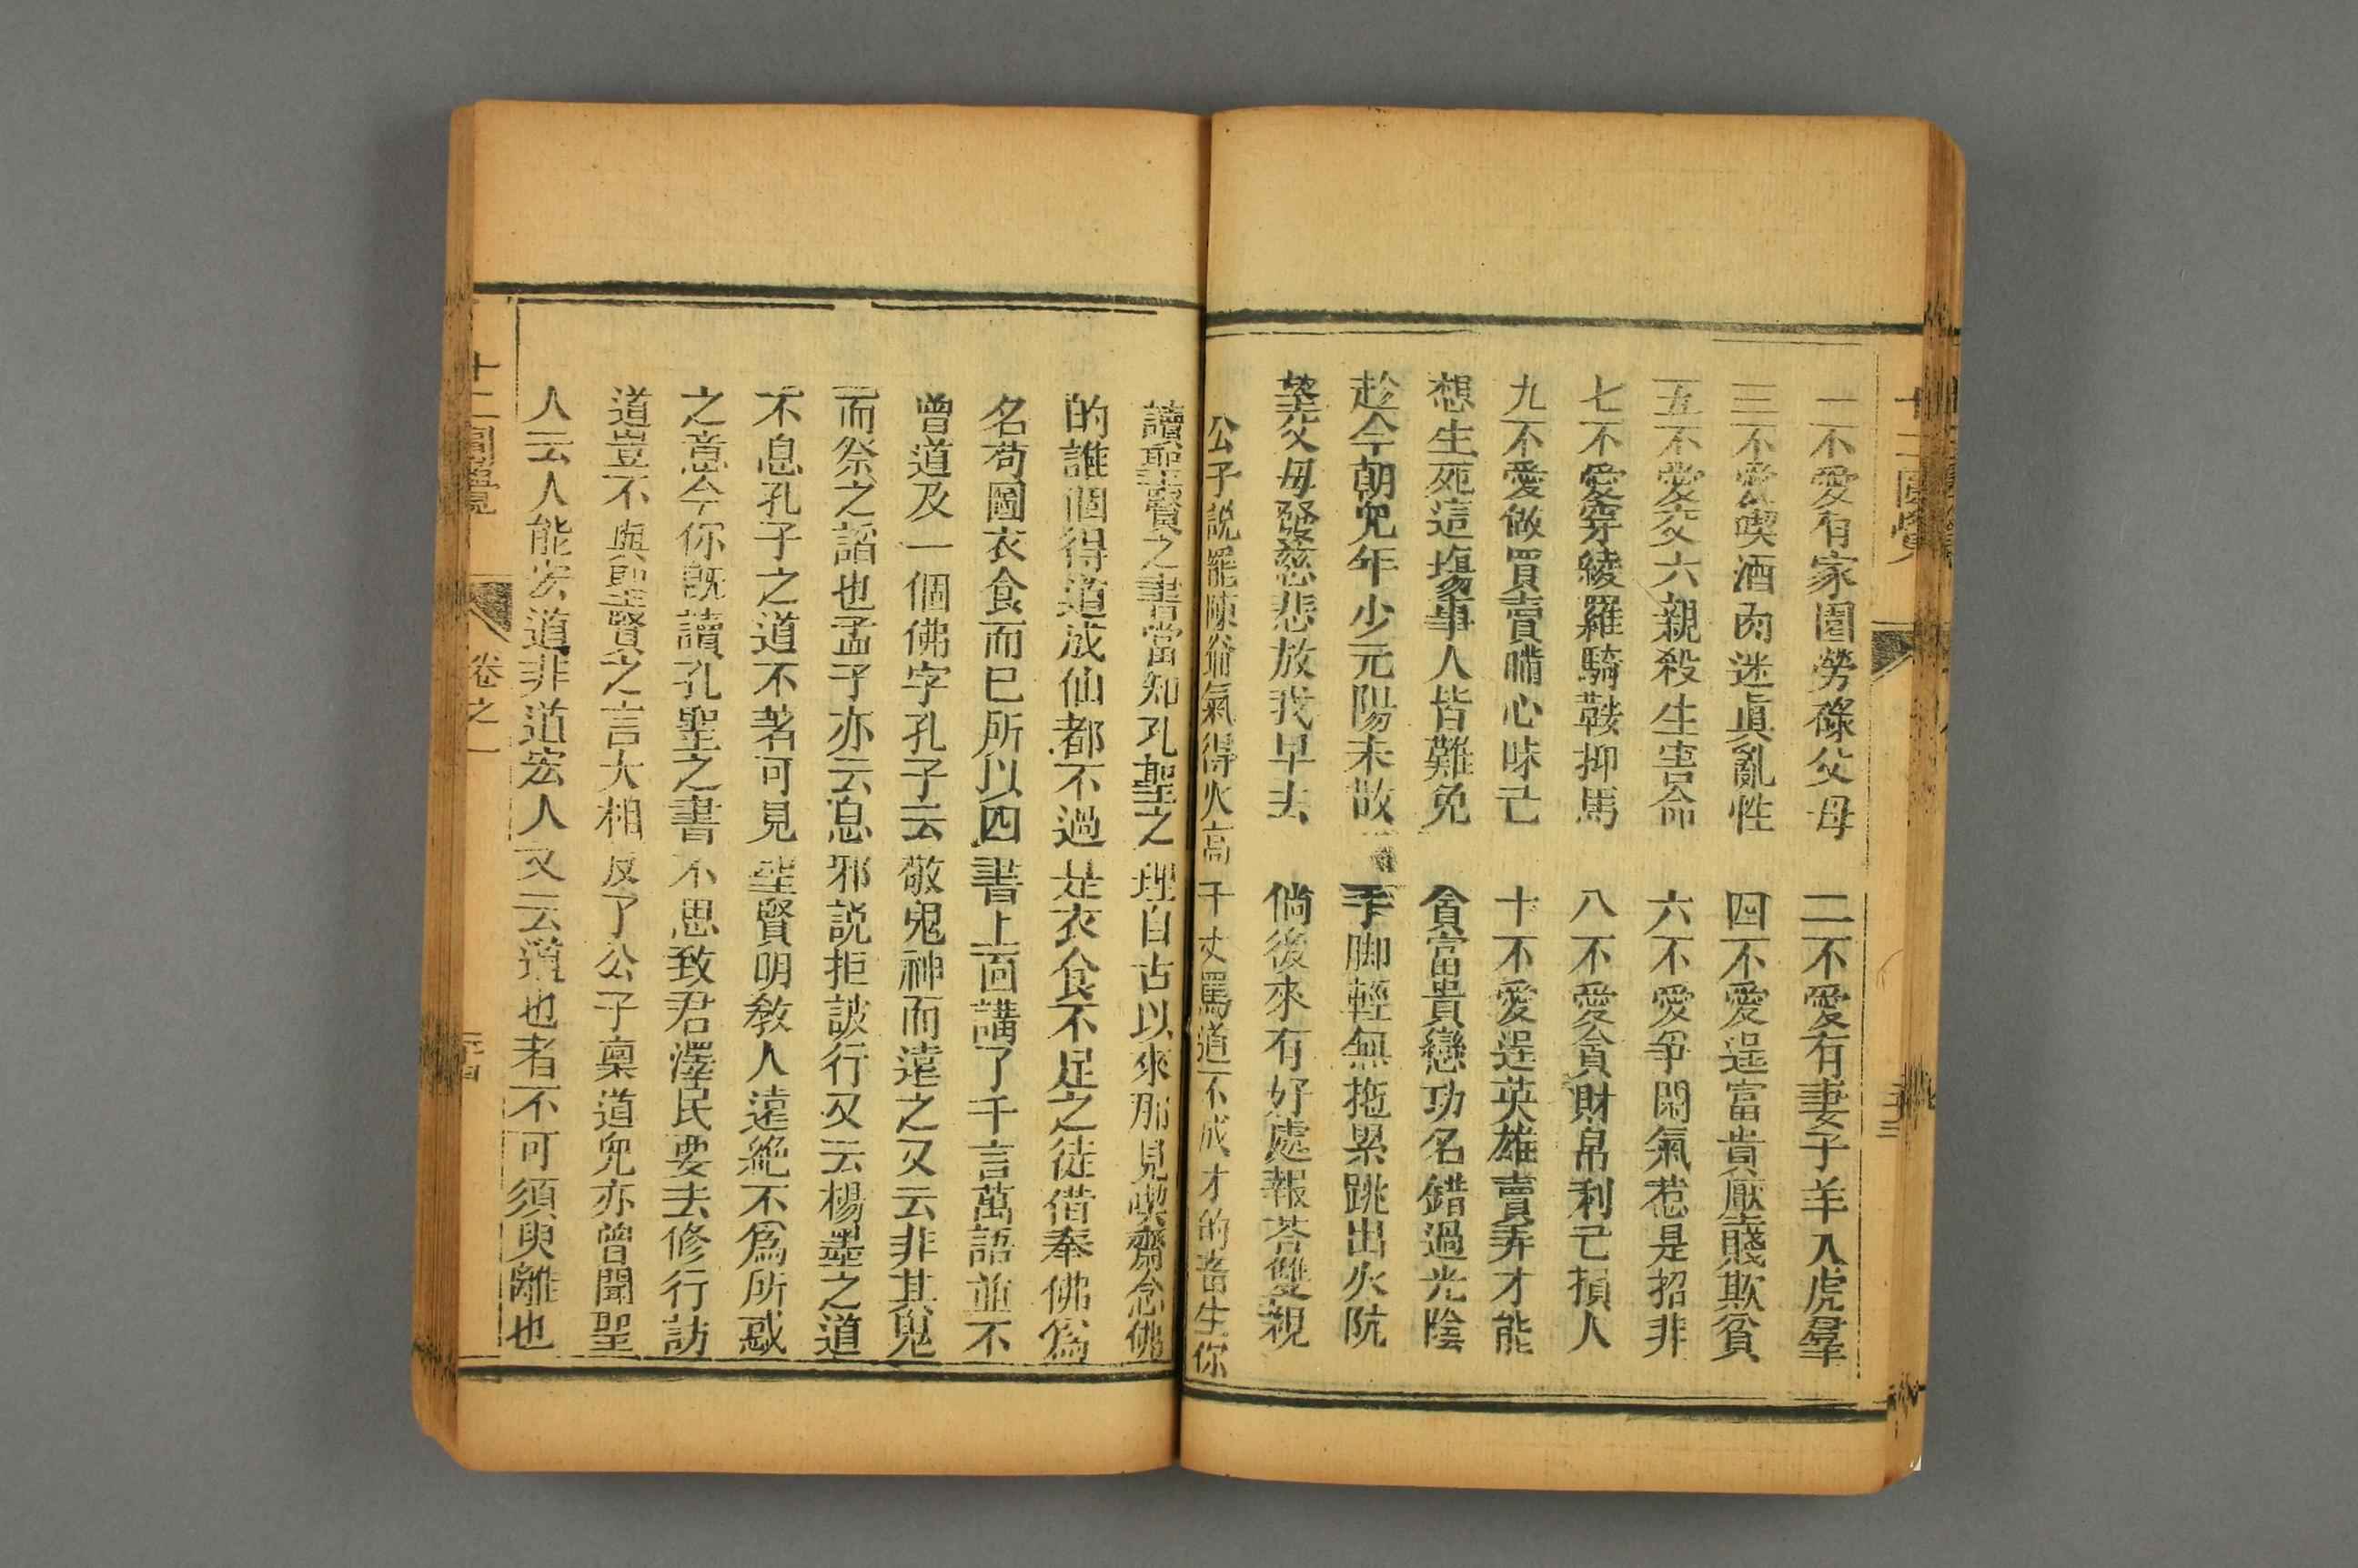 十二圓覺
一不愛有家園勞碌父母　二不愛有妻子羊入虎羣
三不愛喫酒肉迷眞亂性　四不愛逞富貴厭賤欺貧
五不愛交六親殺生害命　六不愛爭閑氣惹是招非
七不愛穿綾羅騎鞍抑馬　八不愛貪財帛利己損人
九不愛做買賣瞞心昧己　十不愛逞英雄賣弄才能
想生死這塲事人皆難免　貪富貴戀功名錯過光陰
趁今朝兒年少元陽未故　手脚輕無拖累跳出火阬
望父母發慈悲放我早去　倘後來有好處報荅雙親
公子説罷陳翁氣得火高千丈罵道不成才的畜生你
讀聖賢之書當知孔聖之理自古以來那見喫齋念佛
的誰個得道成仙都不過是衣食不足之徒借奉佛爲
名苟圖衣食而已所以四書上面講了千言萬語並不
曾道及一個佛字孔子云敬鬼神而遠之又云非其鬼
而祭之諂也孟子亦云息邪説拒詖行又云楊墨之道
不息孔子之道不著可見聖賢明教人遠絶不爲所惑
之意今你既讀孔聖之書不思致君澤民要去修行訪
道豈不與聖賢之言大相反了公子禀道兒亦曾聞聖
人云人能宏道非道宏人又云道也者不可須臾離也
十二圓覺　卷之一